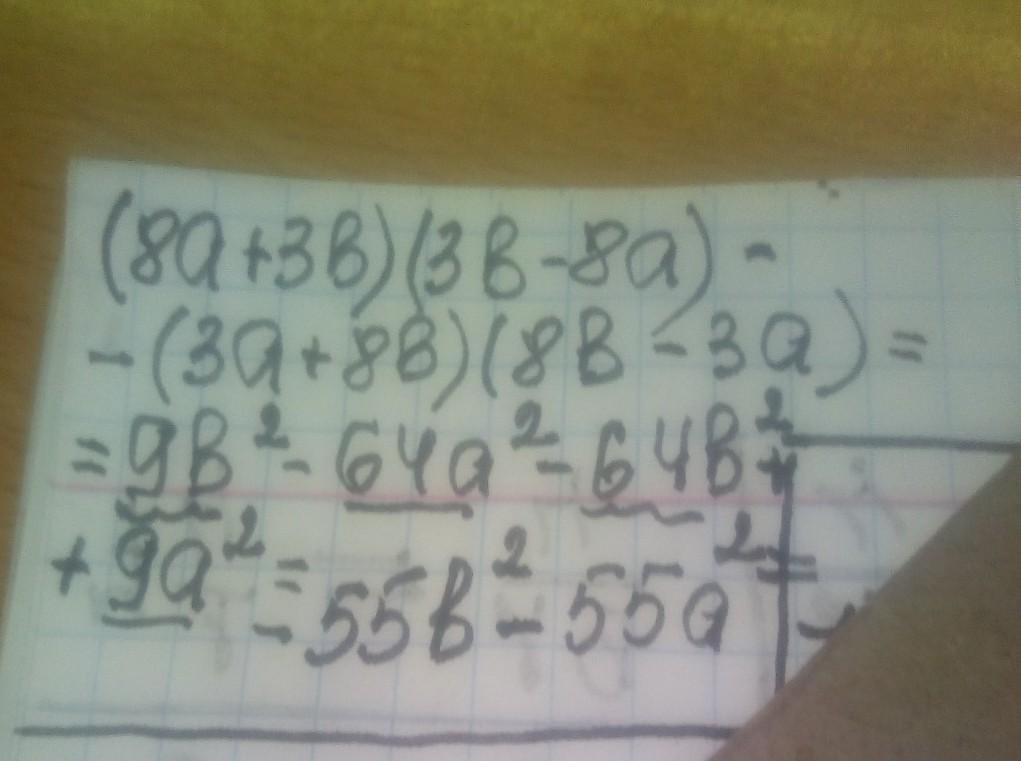 (8a+3b)(3b-8a) -
- (3a+8b)(8b-3a) =
= 9b² - 64a² - 64b² +
+ 9a² = - 55b² - 55a² =